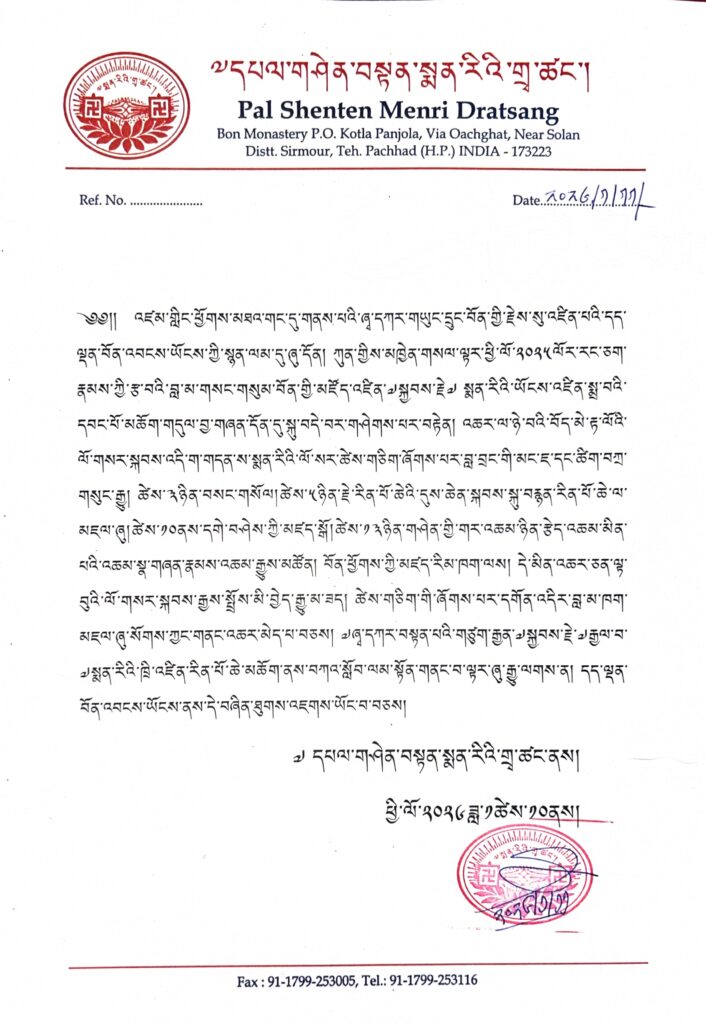 ༧དཔལ་གཤེན་བསྟན་སྨན་རིའི་གྲྭ་ཚང་།
Pal Shenten Menri Dratsang
Bon Monastery P.O. Kotla Panjola, Via Oachghat, Near Solan
Distt. Sirmour, Teh. Pachhad (H.P.) INDIA - 173223
Ref. No. ......................
Date..༢༠༢༦/༡/༡༡
༄༅།། འཛམ་གླིང་ཕྱོགས་མཐའ་གང་དུ་གནས་པའི་ཞྭ་དཀར་གཡུང་དྲུང་བོན་གྱི་རྗེས་སུ་འཛིན་པའི་དད་
ལྡན་བོན་འབངས་ཡོངས་ཀྱི་སྙན་ལམ་དུ་ཞུ་དོན། ཀུན་གྱིས་མཁྱེན་གསལ་ལྟར་ཕྱི་ལོ་༢༠༢༥ལོར་རང་ཅག་
རྣམས་ཀྱི་རྩ་བའི་བླ་མ་གསང་གསུམ་བོན་གྱི་མཛོད་འཛིན་༧སྐྱབས་རྗེ་༧ སྨན་རིའི་ཡོངས་འཛིན་སྨྲ་བའི་
དབང་པོ་མཆོག་གདུལ་བྱ་གཞན་དོན་དུ་སྐུ་བདེ་བར་གཤེགས་པར་བརྟེན། འཆར་ལ་ཉེ་བའི་བོད་མེ་རྟ་ལོའི་
ལོ་གསར་སྐབས་འདི་ག་གདན་ས་སྨན་རིའི་ལོ་སར་ཚེས་གཅིག་ཞོགས་པར་བླ་བྲང་གི་མང་ཇ་དང་ཚིག་བཀྲ་
གསུང་རྒྱུ། ཚེས་༣ཉིན་བསང་གསོལ། ཚེས་༥ཉིན་རྗེ་རིན་པོ་ཆེའི་དུས་ཆེན་སྐབས་སྐུ་བརྙན་རིན་པོ་ཆེ་ལ་
མཇལ་ཞུ། ཚེས་༡༠ནས་དགེ་བཤེས་ཀྱི་མཛད་སྒོ། ཚེས་༡༣ཉིན་གཤེན་གྱི་གར་འཆམ་ཉིན་རྩེད་འཆམ་མིན་
པའི་འཆམ་སྣ་གཞན་རྣམས་འཆམ་རྒྱུས་མཚོན། བོན་ཕྱོགས་ཀྱི་མཛད་རིམ་ཁག་ལས། དེ་མིན་འཆར་ཅན་ལྟ་
བུའི་ལོ་གསར་སྐབས་རྒྱས་སྤྲོས་མི་བྱེད་རྒྱུ་མ་ཟད། ཚེས་གཅིག་གི་ཞོགས་པར་དགོན་འདིར་བླ་མ་ཁག་
མཇལ་ཞུ་སོགས་ཀྱང་གནང་འཆར་མེད་པ་བཅས། ༧ཞྭ་དཀར་བསྟན་པའི་གཙུག་རྒྱན་༧སྐྱབས་རྗེ་༧རྒྱལ་བ་
༧སྨན་རིའི་ཁྲི་འཛིན་རིན་པོ་ཆེ་མཆོག་ནས་བཀའ་སློབ་ལམ་སྟོན་གནང་བ་ལྟར་ཞུ་རྒྱུ་ལགས་ན། དད་ལྡན་
བོན་འབངས་ཡོངས་ནས་དེ་བཞིན་ཐུགས་འཇགས་ཡོང་བ་བཅས།
༧ དཔལ་གཤེན་བསྟན་སྨན་རིའི་གྲྭ་ཚང་ནས།
ཕྱི་ལོ་༢༠༢༦ཟླ་༡ཚེས་༡༠ནས།
༢༠༢༦/༡/༡༡
Fax : 91-1799-253005, Tel.: 91-1799-253116